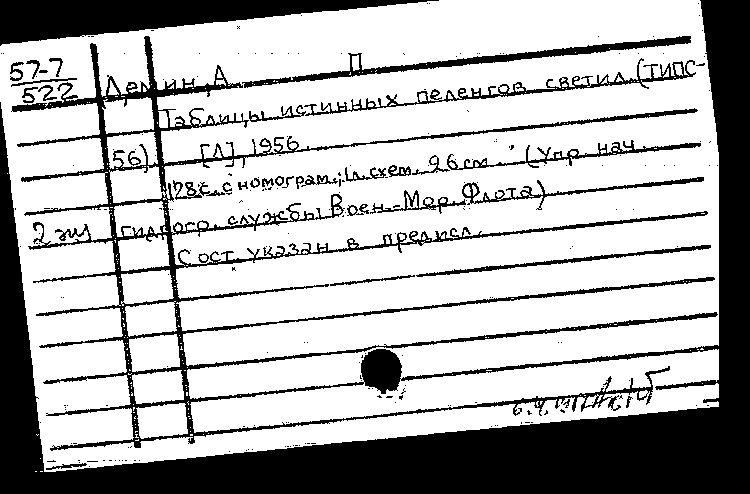 57-7
522
Демин, А. П
Таблицы истинных пеленгов светил (ТИПС-
56). [Л], 1956.
178с. с номограм.; 1л. схем. 26см. (Упр. нач.
2 экз гидрогр. службы Воен-Мор. Флота)
Сост. указан в предисл.